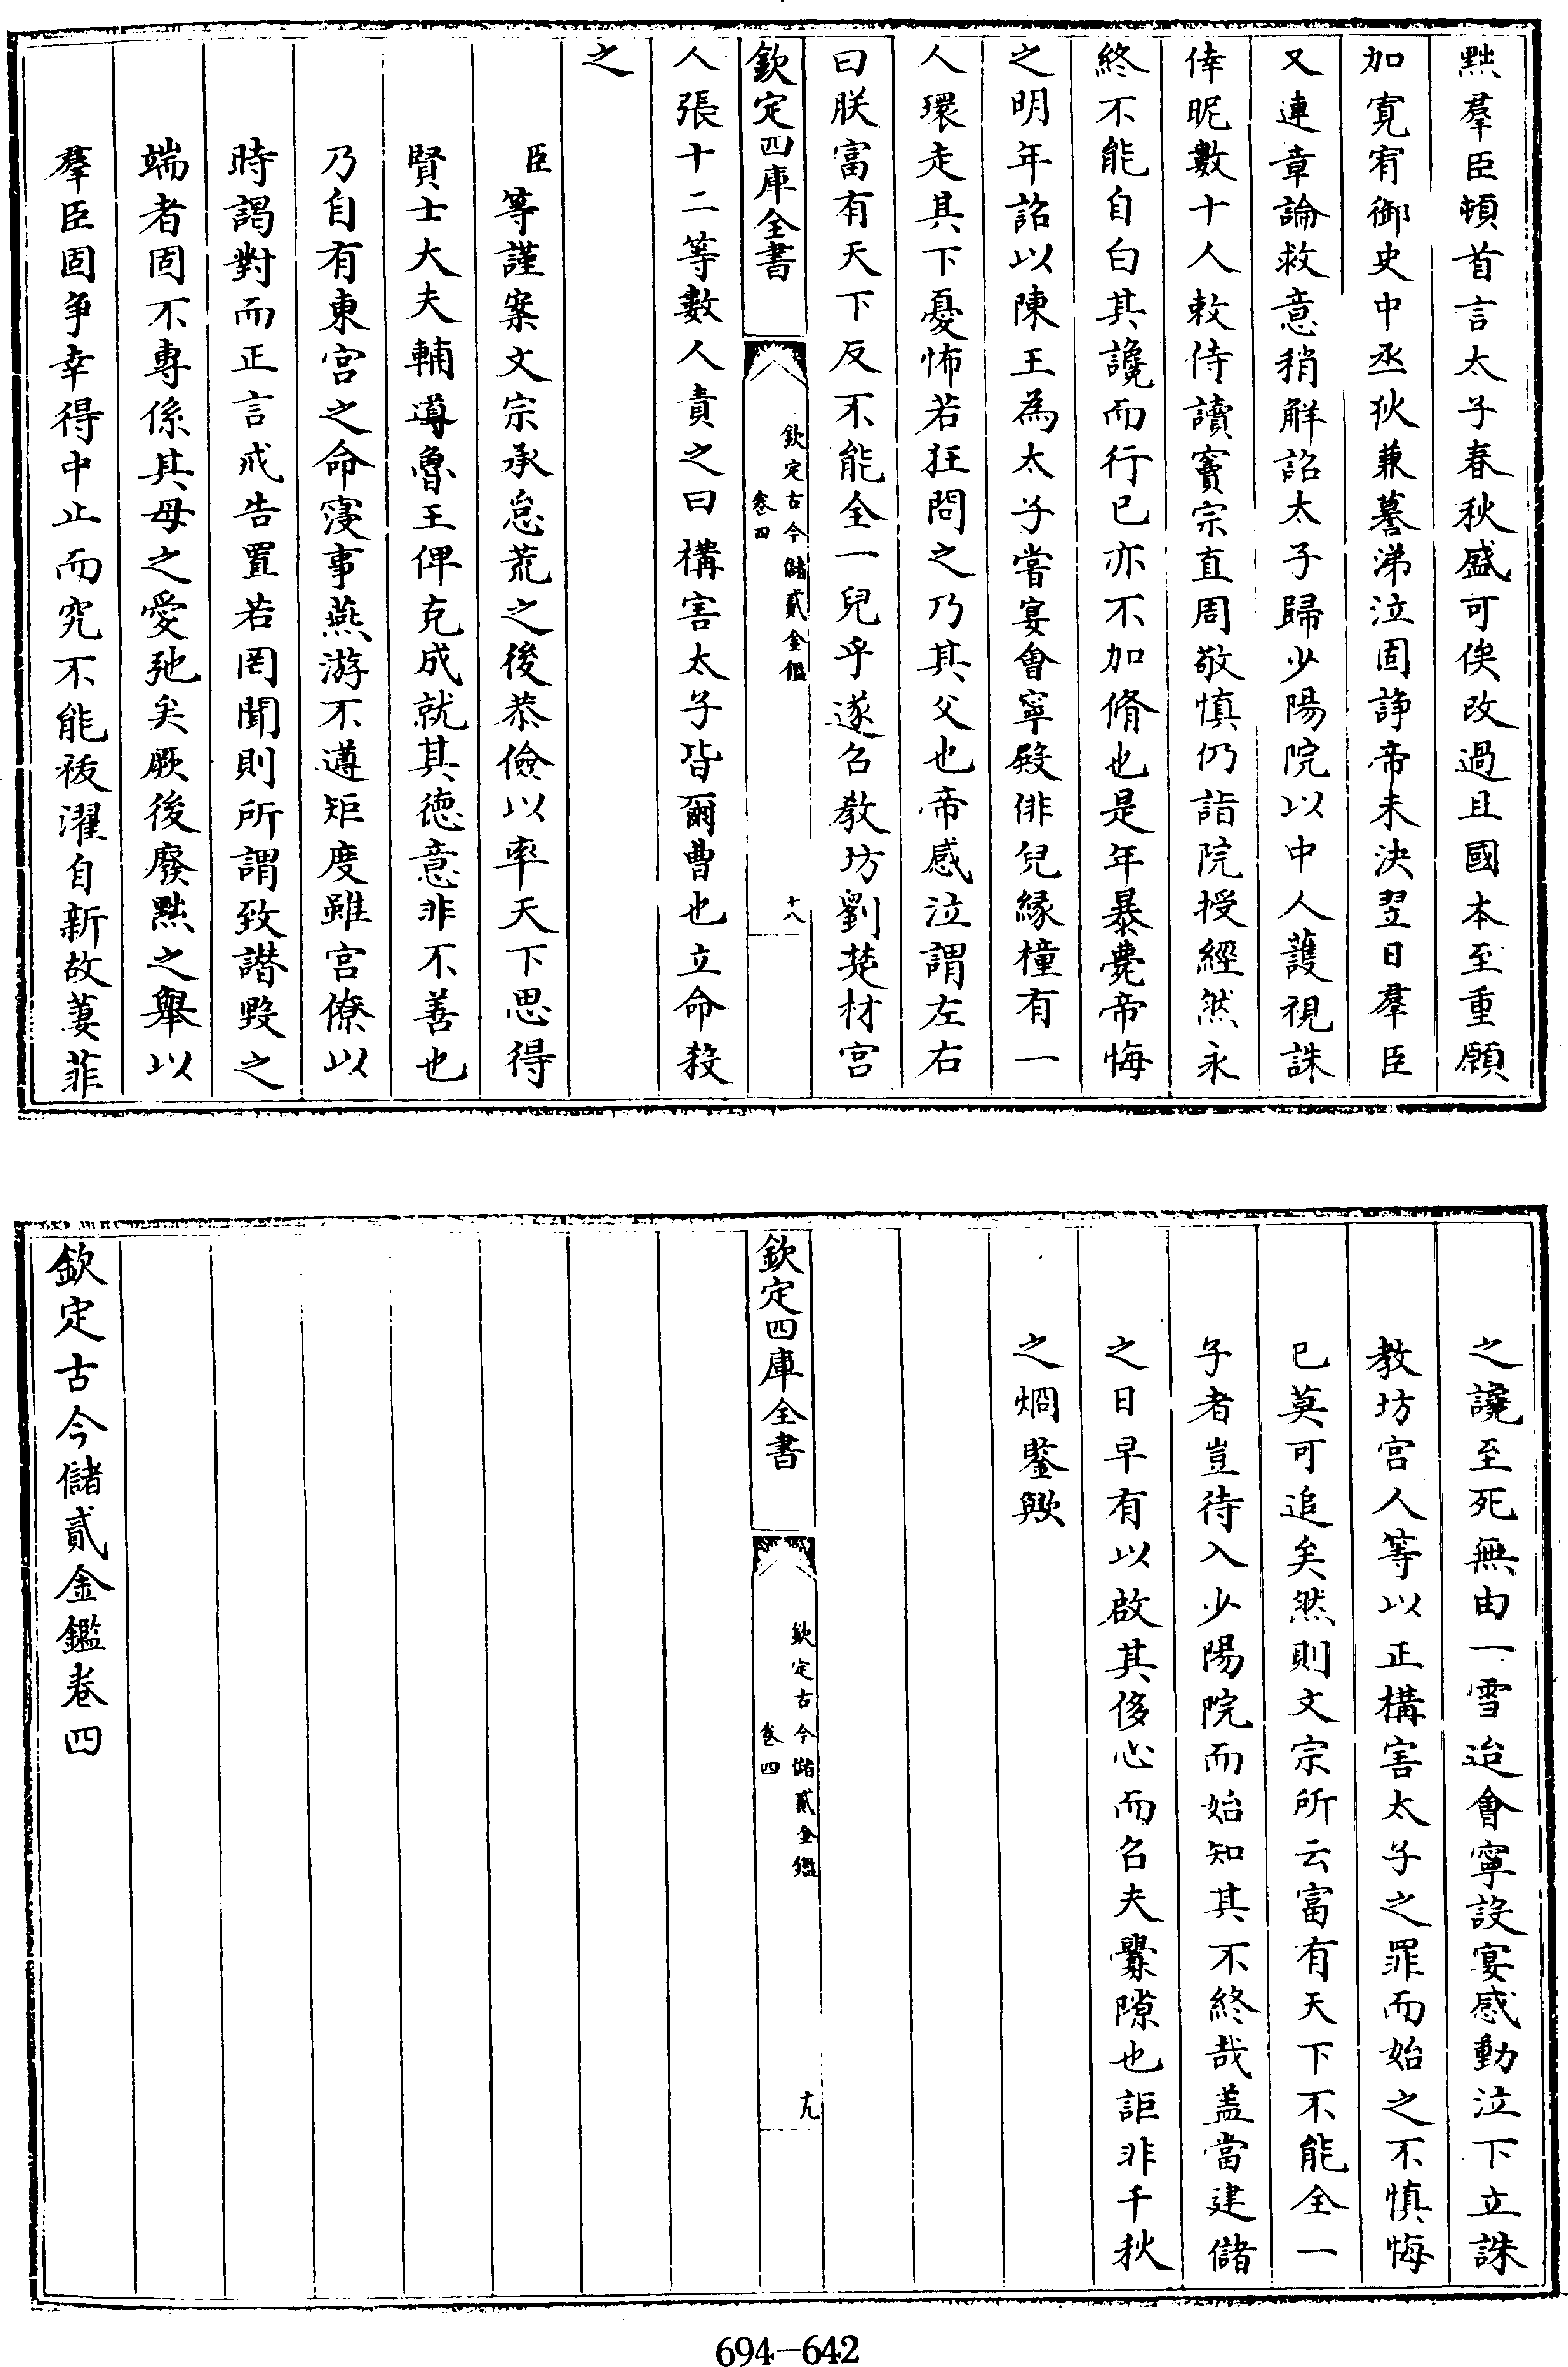 黜羣臣頓首言太子春秋盛可俟改過且國本至重願
加寛宥御史中丞狄兼謩涕泣固諍帝未決翌日羣臣
又連章論救意稍解詔太子歸少陽院以中人䕶視誅
倖昵數十人敕侍讀竇宗直周敬慎仍詣院授經然永
終不能自白其讒而行已亦不加脩也是年暴薨帝悔
之明年詔以陳王為太子嘗宴會寧殿俳兒緣橦有一
人環走其下憂怖若狂問之乃其父也帝感泣謂左右
曰朕富有天下反不能全一兒乎遂召教坊劉楚材宫
欽定四庫全書
欽定古今儲貳金鑑
卷四
十八
人張十二等數人責之曰構害太子皆爾曹也立命殺
之
臣等謹案文宗承怠荒之後恭儉以率天下思得
賢士大夫輔導魯王俾克成就其徳意非不善也
乃自有東宫之命寖事燕游不遵矩度雖宫僚以
時謁對而正言戒告置若罔聞則所謂致譖毀之
端者固不專係其母之愛弛矣厥後廢黜之舉以
羣臣固爭幸得中止而究不能祓濯自新故萋菲
之讒至死無由一雪迨會寧設宴感動泣下立誅
教坊宫人等以正構害太子之罪而始之不慎悔
已莫可追矣然則文宗所云富有天下不能全一
子者豈待入少陽院而始知其不終哉盖當建儲
之日早有以啟其侈心而召夫釁隙也詎非千秋
之烱鑒歟
欽定四庫全書
欽定古今儲貳金鑑
卷四
十九
欽定古今儲貳金鑑卷四
694-642